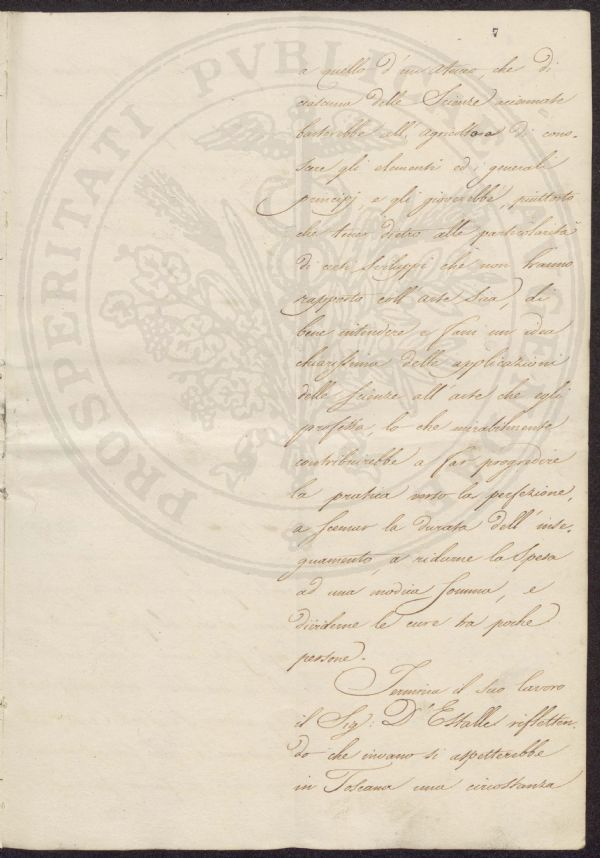 7
a quello d'un Ateneo, che di
ciascuna delle Scienze accennate
basterebbe all'agricoltore di cono-
scere gli elementi ed i generali
principj e gli gioverebbe, piuttosto
che tener dietro alle particolarità
di certi sviluppi che non hanno
rapporto coll'arte Sua, di
bene intendere e farsi un idea
chiarissima delle applicazioni
delle scienze all'arte che egli
professa, lo che mirabilmente
contribuirebbe a far progredire
la pratica verso la perfezione,
a scemar la durata dell'inse-
gnamento, a ridurne la Spesa
ad una modica somma, e
dividerne le cure tra poche
persone.
Termina il suo lavoro
il Sig: D'Estalle rifletten-
do che invano si aspetterebbe
in Toscana una circostanza
PROSPERITATI PVBLICAE AVGENDAE